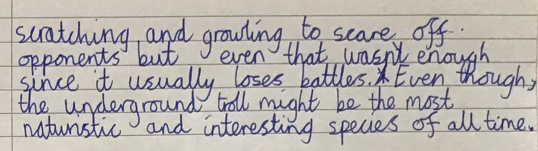 scratching and growling to scare off
opponents but even that wasn't enough
since it usually loses battles.* Even though,
the underground troll might be the most
naturistic and interesting species of all time.